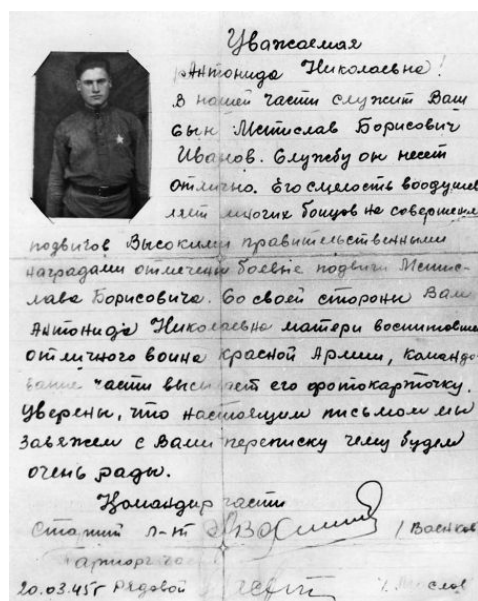 Уважаемая
Антонида Николаевна!
В нашей части служит Ваш
сын Мстислав Борисович
Иванов. Службу он несет
отлично. Его смелость воодушев
ляет многих бойцов на совершение
подвигов Высокими правительственными
наградами отмечены боевые подвиги Мстис-
лава Борисовича. Со своей стороны Вам
Антонида Николаевна матери воспитавшей
отличного воина красной Армии, командо-
вание части высылает его фотокарточку.
Уверены, что настоящим письмом мы
завяжем с Вами переписку чему будем
очень рады.
Командир части
Старший л-нт / Васьков
Парторг части
20.03.45г Рядовой